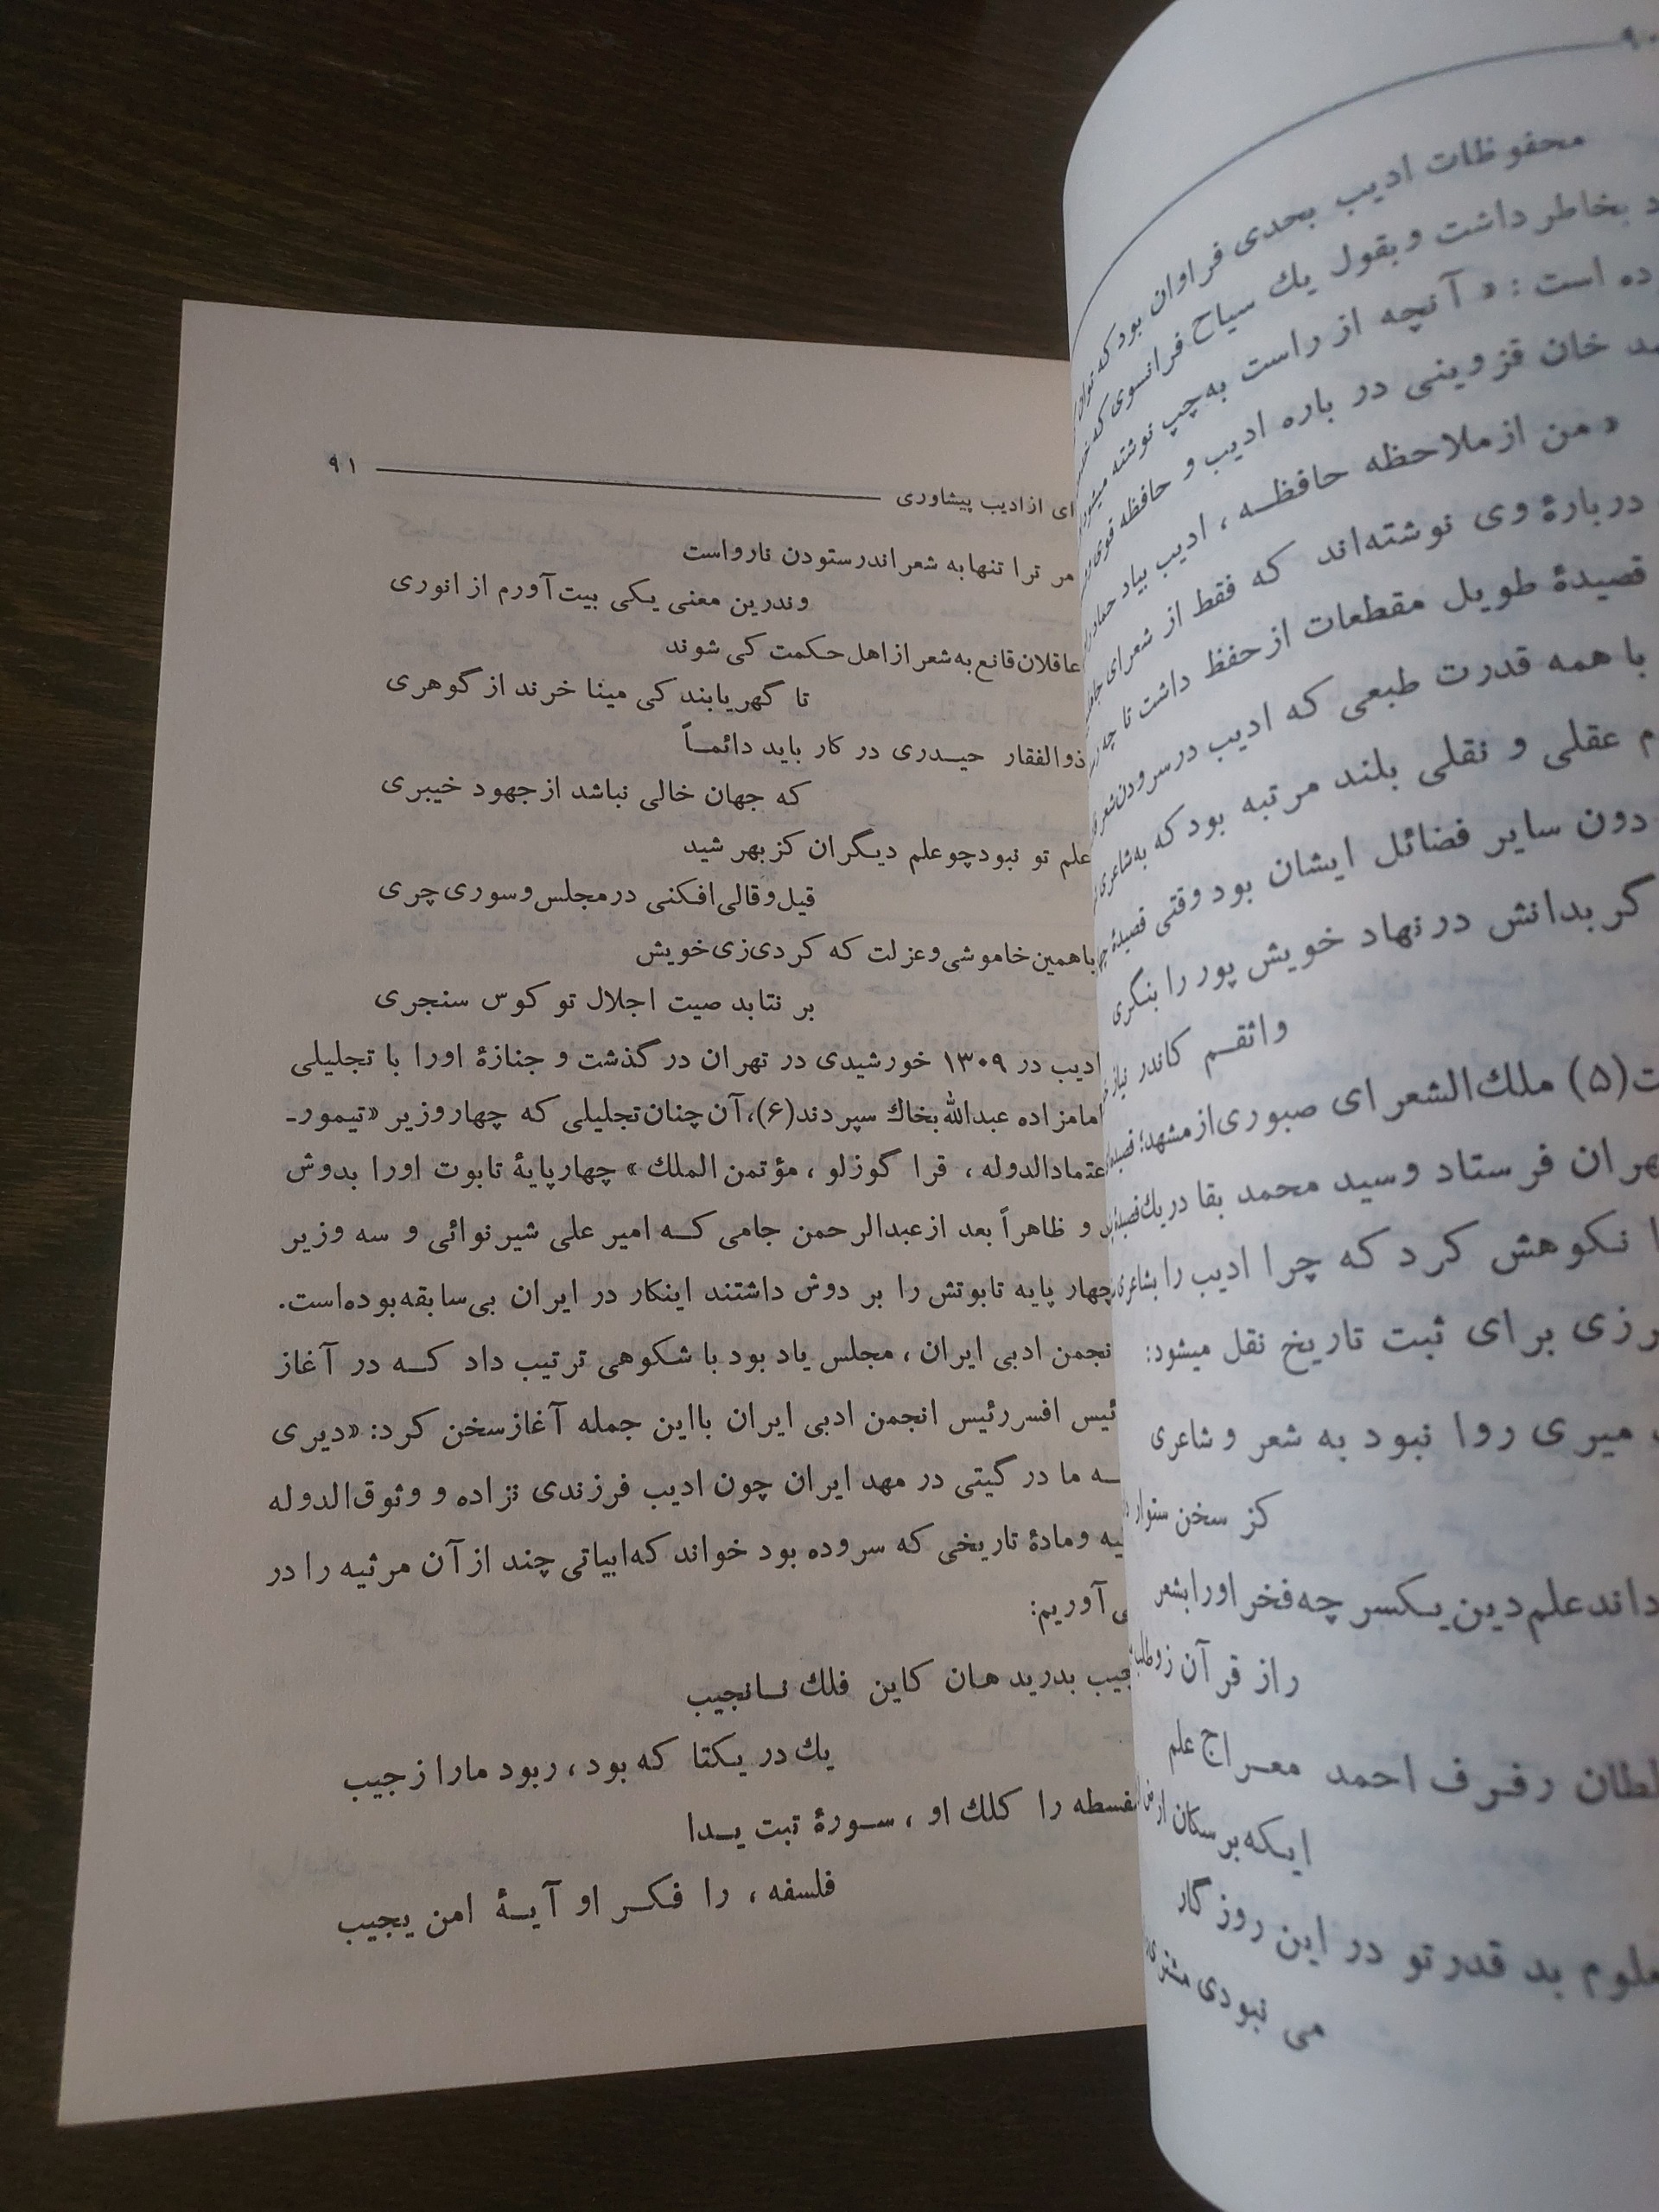 ۹۰
محفوظات ادیب بحدی فراوان بود که
بخاطر داشت و بقول یك سیاح فرانسوی که
ده است : « آنچه از راست به چپ نوشته میشود
خان قزوینی در باره ادیب و حافظه قوی
« من از ملاحظه حافظـه ، ادیب بیاد حماد
دربارهٔ وی نوشته‌اند که فقط از شعرای
قصیدهٔ طویل مقطعات از حفظ داشت تا چه
با همه قدرت طبعی که ادیب در سرودن شعر
عقلی و نقلی بلند مرتبه بود که به شاعری
دون سایر فضائل ایشان بود وقتی قصیدهٔ
کر بدانش در نهاد خویش پور را بنگری
واثقـم کاندر نیاز
(۵) ملك‌الشعرای صبوری از مشهد؛
فرستاد و سید محمد بقا در یك قصیدهٔ
نکوهش کرد که چرا ادیب را بشاعری
رزی برای ثبت تاریخ نقل میشود:
میری روا نبود به شعر و شاعری
کز سخن ستوار
داند علم دین یـکسر چه فخر اورا بشعر
راز قرآن زو
رفـرف احمد معـراج علم
ایـکه بر سکان ارض
بد قدر تو در این روزگار
می نبودی مشتری
ای از ادیب پیشاوری ۹۱
مر ترا تنها به شعر اندر ستودن نارواست
وندرین معنی یـکی بیت آورم از انوری
عاقلان قانع به شعر از اهل حـکمت کی شوند
تا گهر یابند کی مینا خرند از گوهری
ذوالفقار حیـدری در کار باید دائمـاً
که جهان خالی نباشد از جهود خیبری
علم تو نبود چو علم دیـگران کز بهر شید
قیل و قالی افـکنی در مجلس و سوری چری
باهمین خاموشی و عزلت که کردی زی خویش
بر نتابد صیت اجلال تو کوس سنجری
ادیب در ۱۳۰۹ خورشیدی در تهران در گذشت و جنازهٔ اورا با تجلیلی
امامزاده عبدالله بخاك سپردند(۶)،آن چنان تجلیلی که چهار وزیر «تیمور-
عتمادالدوله ، قرا گوزلو ، مؤتمن الملك » چهارپایهٔ تابوت اورا بدوش
و ظاهراً بعد از عبدالرحمن جامی کـه امیر علی شیر نوائی و سه وزیر
چهار پایه تابوتش را بر دوش داشتند اینکار در ایران بی‌سابقه بوده‌است.
نجمن ادبی ایران ، مجلس یاد بود با شکوهی ترتیب داد کـه در آغاز
ئیس افسر رئیس انجمن ادبی ایران بااین جمله آغاز سخن کرد: «دیری
ـه ما در گیتی در مهد ایران چون ادیب فرزندی نزاده و وثوق‌الدوله
یه و مادهٔ تاریخی که سروده بود خواند که ابیاتی چند از آن مرثیه را در
ی آوریم:
جیب بدرید هـان کاین فلك نـانجیب
یك در یـکتا که بود ، ربود مارا ز جیب
فسطه را کلك او ، سـورهٔ تبت یـدا
فلسفه ، را فـکـر او آیـهٔ امن یجیب